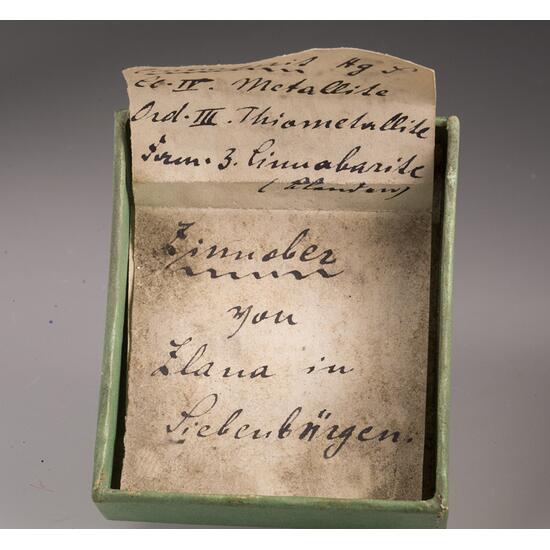 Hg S
Cl. IV. Metallite
Ord. III. Thiometallite
Form. 3. Cinnabarite
(Blenden)
Zinnober
von
Zlana in
Siebenbürgen.